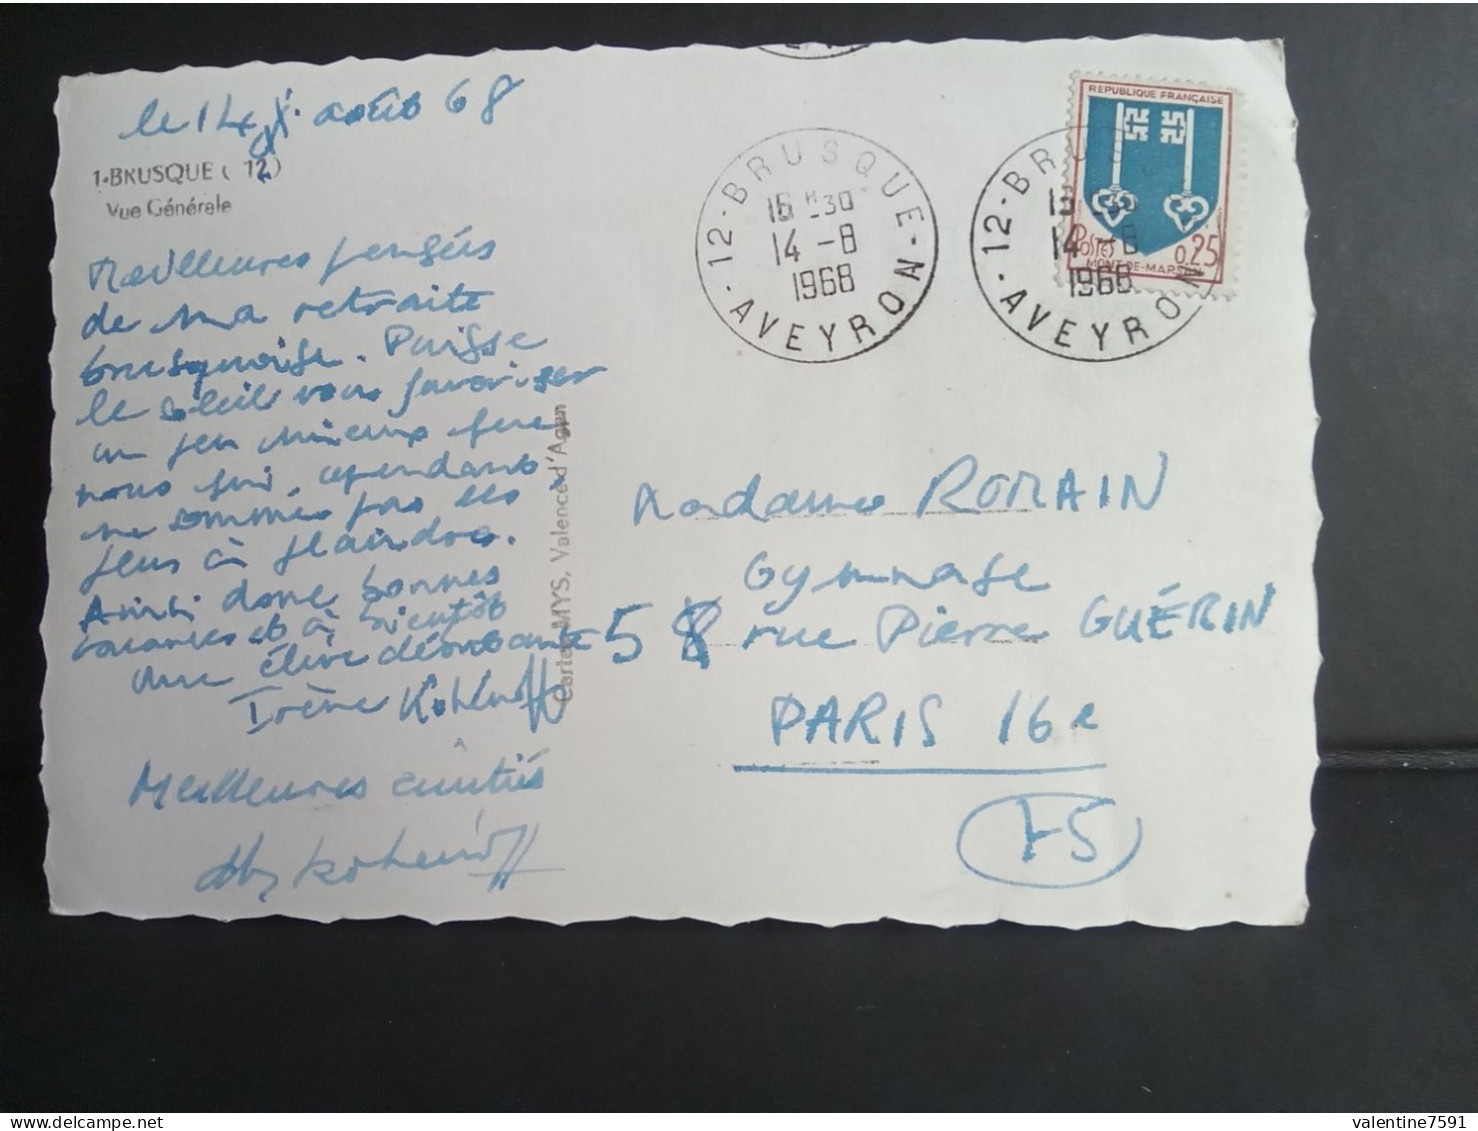 le 14 août 68
1-BRUSQUE (12)
Vue Générale
Meilleures pensées
de ma retraite
brusquoise. Puisse
le soleil vous favoriser
un peu mieux que
nous qui, cependant
ne sommes pas les
plus à plaindre.
Ainsi donc bonnes
vacances et à bientôt
une élève débordante
Irène
Meilleures amitiés
Cartes MYS, Valence d'Agen
12-BRUSQUE
16H30
14-8
1968
AVEYRON
12-BRUSQUE
14-8
1968
AVEYRON
REPUBLIQUE FRANÇAISE
POSTES 0,25
MONT-DE-MARSAN
Madame ROMAIN
Gymnase
58 rue Pierre GUÉRIN
PARIS 16e
valentine7591